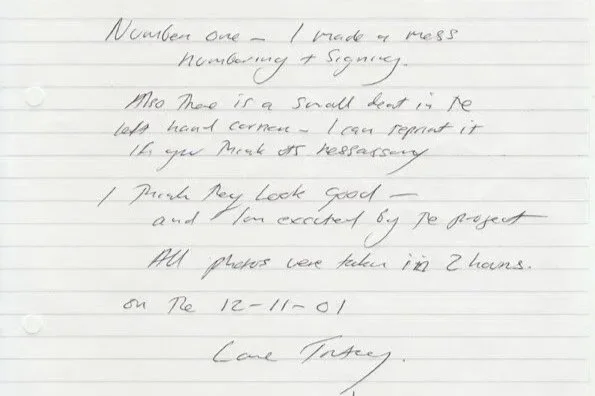 Number one – I made a mess
numbering + signing.
Also there is a small dent in the
left hand corner – I can reprint it
if you think its nessassary
I think they look good –
and I'm excited by the project
All photos were taken in 2 hours.
on the 12-11-01
Love Tracey.